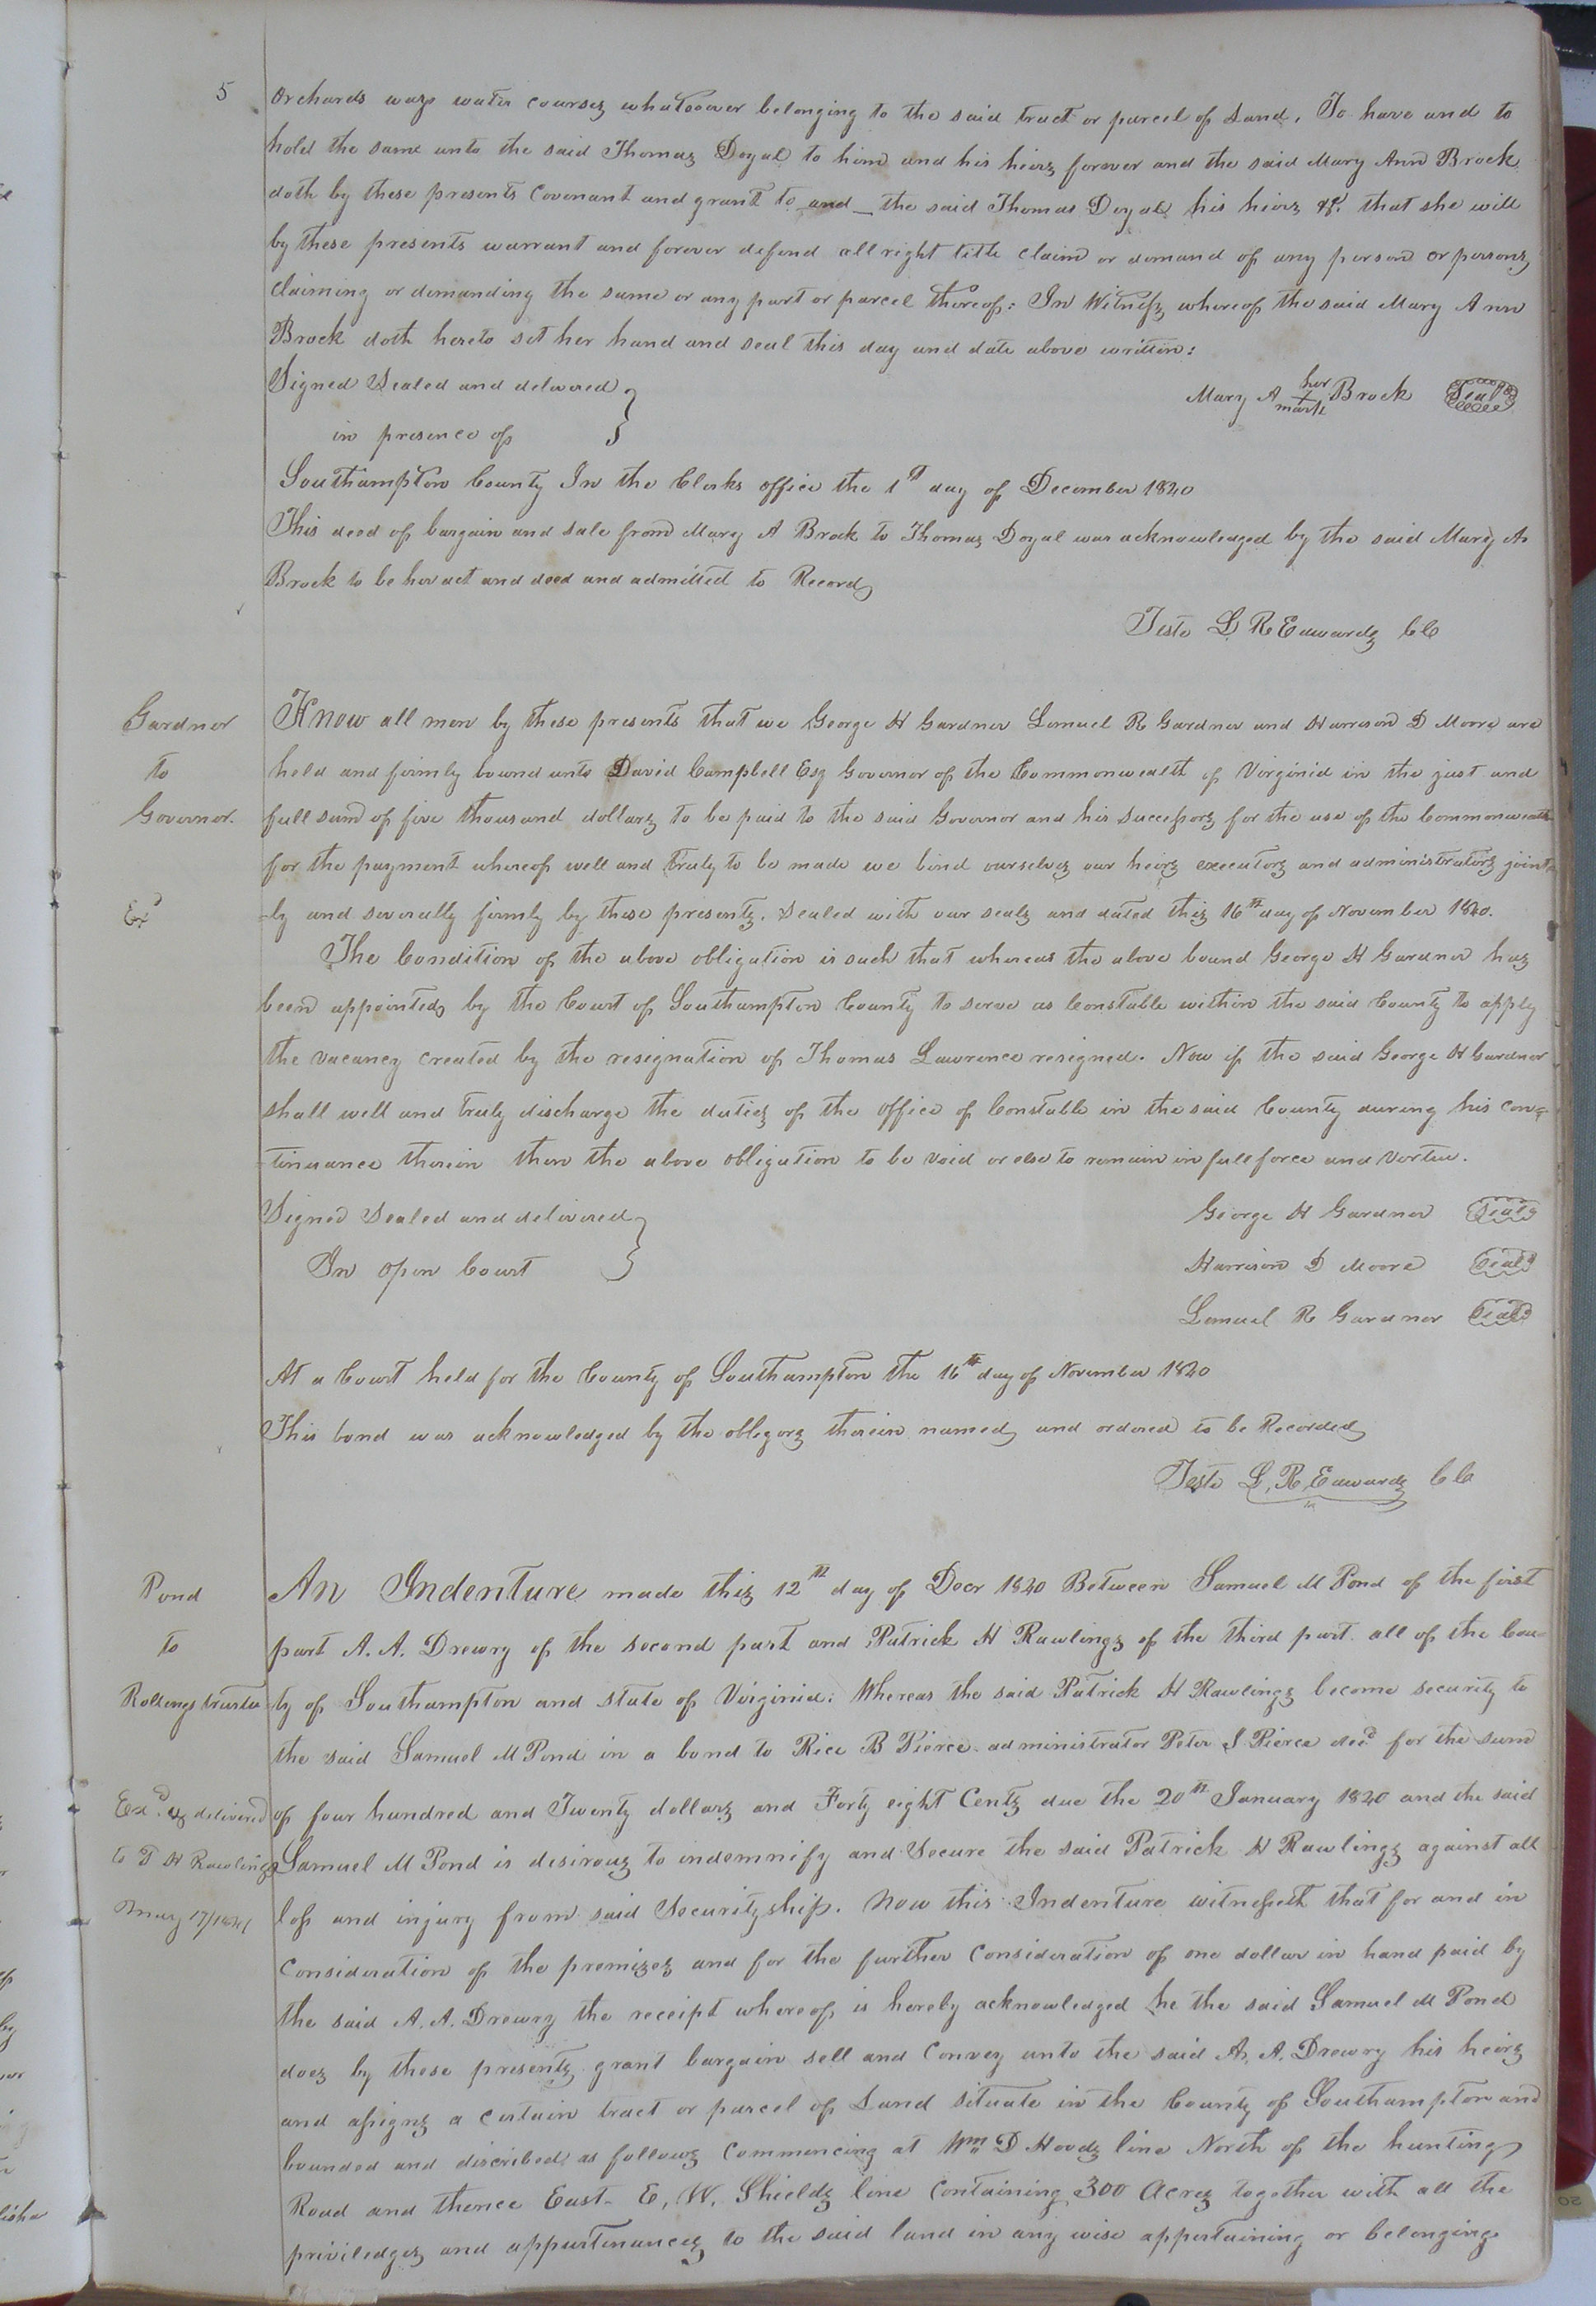 5
orchards ways water courses whatsoever belonging to the said tract or parcel of Land, To have and to
hold the same unto the said Thomas Doyal to him and his heirs forever and the said Mary Ann Brock
doth by these presents covenant and grant to and the said Thomas Doyal his heirs &c. that she will
by these presents warrant and forever defend all right title claim or demand of any person or persons
claiming or demanding the same or any part or parcel thereof: In Witness whereof the said Mary Ann
Brock doth hereto set her hand and seal this day and date above written:
Signed Sealed and delivered
in presence of
Mary A her X mark Brock Seal
Southampton County In the Clerks office the 1st day of December 1840
This deed of bargain and sale from Mary A Brock to Thomas Doyal was acknowledged by the said Mary A
Brock to be her act and deed and admitted to Record
Teste L R Edwards CC
Gardner
to
Governor.
Exd
Know all men by these presents that we George H Gardner Lemuel R Gardner and Harrison D Moore are
held and firmly bound unto David Campbell Esq Governor of the Commonwealth of Virginia in the just and
full sum of five thousand dollars to be paid to the said Governor and his successors for the use of the Commonwealth
for the payment whereof well and truly to be made we bind ourselves our heirs executors and administrators joint=
=ly and severally firmly by these presents. Sealed with our seals and dated this 16th day of November 1840.
The Condition of the above obligation is such that whereas the above bound George H Gardner has
been appointed by the Court of Southampton County to serve as Constable within the said County to apply
the vacancy created by the resignation of Thomas Lawrence resigned. Now if the said George H Gardner
shall well and truly discharge the duties of the office of Constable in the said County during his con=
=tinuance therein then the above obligation to be void or else to remain in full force and virtue.
Signed Sealed and delivered
In open Court
George H Gardner Seal
Harrison D Moore Seal
Lemuel R Gardner Seal
At a Court held for the County of Southampton the 16th day of November 1840
This bond was acknowledged by the oblegors therein named and ordered to be Recorded
Teste L, R, Edwards CC
Pond
to
Rollings trustee
Exd. & delivered
to P H Rawlings
May 17/1841
An Indenture made this 12th day of Decr 1840 Between Samuel M Pond of the first
part A. A. Drewry of the second part and Patrick H Rawlings of the third part all of the Coun
ty of Southampton and state of Virginia: Whereas the said Patrick H Rawlings become security to
the said Samuel M Pond in a bond to Rice B Pierce administrator Peter S Pierce decd for the sum
of four hundred and Twenty dollars and Forty eight Cents due the 20th January 1840 and the said
Samuel M Pond is desirous to indemnify and Secure the said Patrick H Rawlings against all
loss and injury from said Securityship. Now this Indenture witnesseth that for and in
Consideration of the premises and for the further Consideration of one dollar in hand paid by
the said A. A. Drewry the receipt whereof is hereby acknowledged he the said Samuel M Pond
does by these presents grant bargain sell and Convey unto the said A, A. Drewry his heirs
and assigns a certain tract or parcel of Land situate in the County of Southampton and
bounded and discribed as follows Commencing at Wm D Hoods line North of the hunting
Road and thence East- E, W. Shields line Containing 300 Acres together with all the
priviledges and appurtenances to the said land in any wise appertaining or belonging